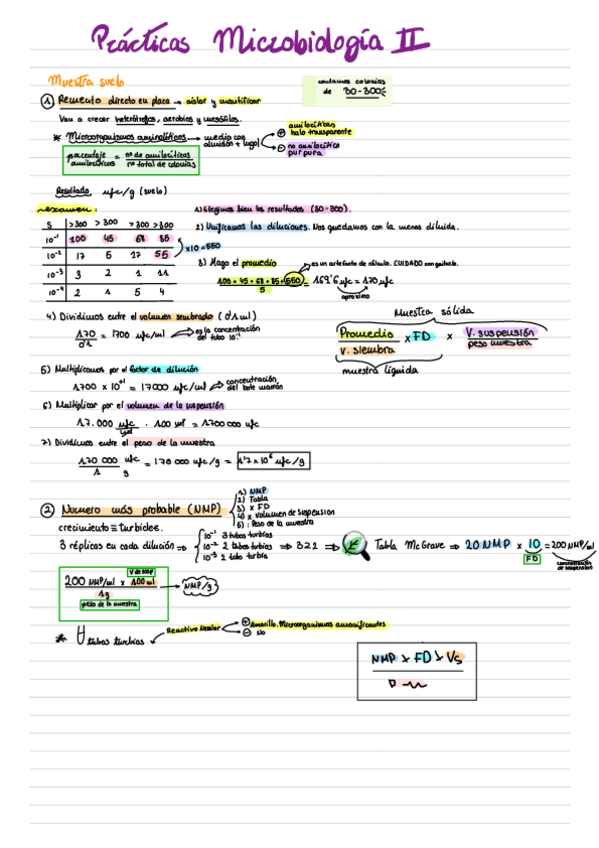 Prácticas Microbiología II
Muestra suelo
contamos colonias
de 30-300
① Recuento directo en placa → aislar y cuantificar
Van a crecer heterótrofos, aerobios y mesófilos.
* Microorganismos aminolíticos → medio con almidón + lugol
⊕ amilolíticas halo transparente
⊖ no amilolítico púrpura
porcentaje amilolíticos = nº de amilolíticos / nº total de colonias
Resultado ufc/g (suelo)
examen:
S >300 >300 >300 >300
10⁻¹ 100 45 68 85
10⁻² 17 5 17 55
10⁻³ 3 2 1 11
10⁻⁴ 2 1 5 4
x10 = 550
1) Elegimos bien los resultados (30-300).
2) Unificamos las diluciones. Nos quedamos con la menos diluida.
3) Hago el promedio
es un artefacto de cálculo. CUIDADO con quitarlo.
100 + 45 + 68 + 85 + 550 / 5 = 169'6 ufc = 170 ufc
aproximo
4) Dividimos entre el volumen sembrado (0'1 ml)
170 / 0'1 = 1700 ufc/ml → es la concentración del tubo 10⁻¹
Muestra sólida
Promedio / V. siembra x FD x V. suspensión / peso muestra
muestra líquida
5) Multiplicamos por el factor de dilución
1700 x 10⁺¹ = 17000 ufc/ml → concentración del bote marrón
6) Multiplicar por el volumen de la suspensión
17.000 ufc/ml · 100 ml = 1700000 ufc
7) Dividimos entre el peso de la muestra
170 000 / 1 ufc/g = 170 000 ufc/g = 1'7 x 10⁶ ufc/g
② Numero más probable (NMP)
1) NMP
2) Tabla
3) x FD
4) x volumen de suspension
5) : Peso de la muestra
crecimiento ≡ turbidez.
3 réplicas en cada dilución ⇒
10⁻¹ 3 tubos turbios
10⁻² 2 tubos turbios
10⁻³ 2 tubo turbio
⇒ 321 ⇒ Tabla McGrave ⇒ 20 NMP x 10 = 200 NMP/ml
FD
concentración de suspension
V de susp
200 NMP/ml x 100 ml / 1g → NMP/g
peso de la muestra
* ∀ tubos turbios
Reactivo Nessler
⊕ Amarillo. Microorganismos amonificantes
⊖ No
NMP x FD x Vs